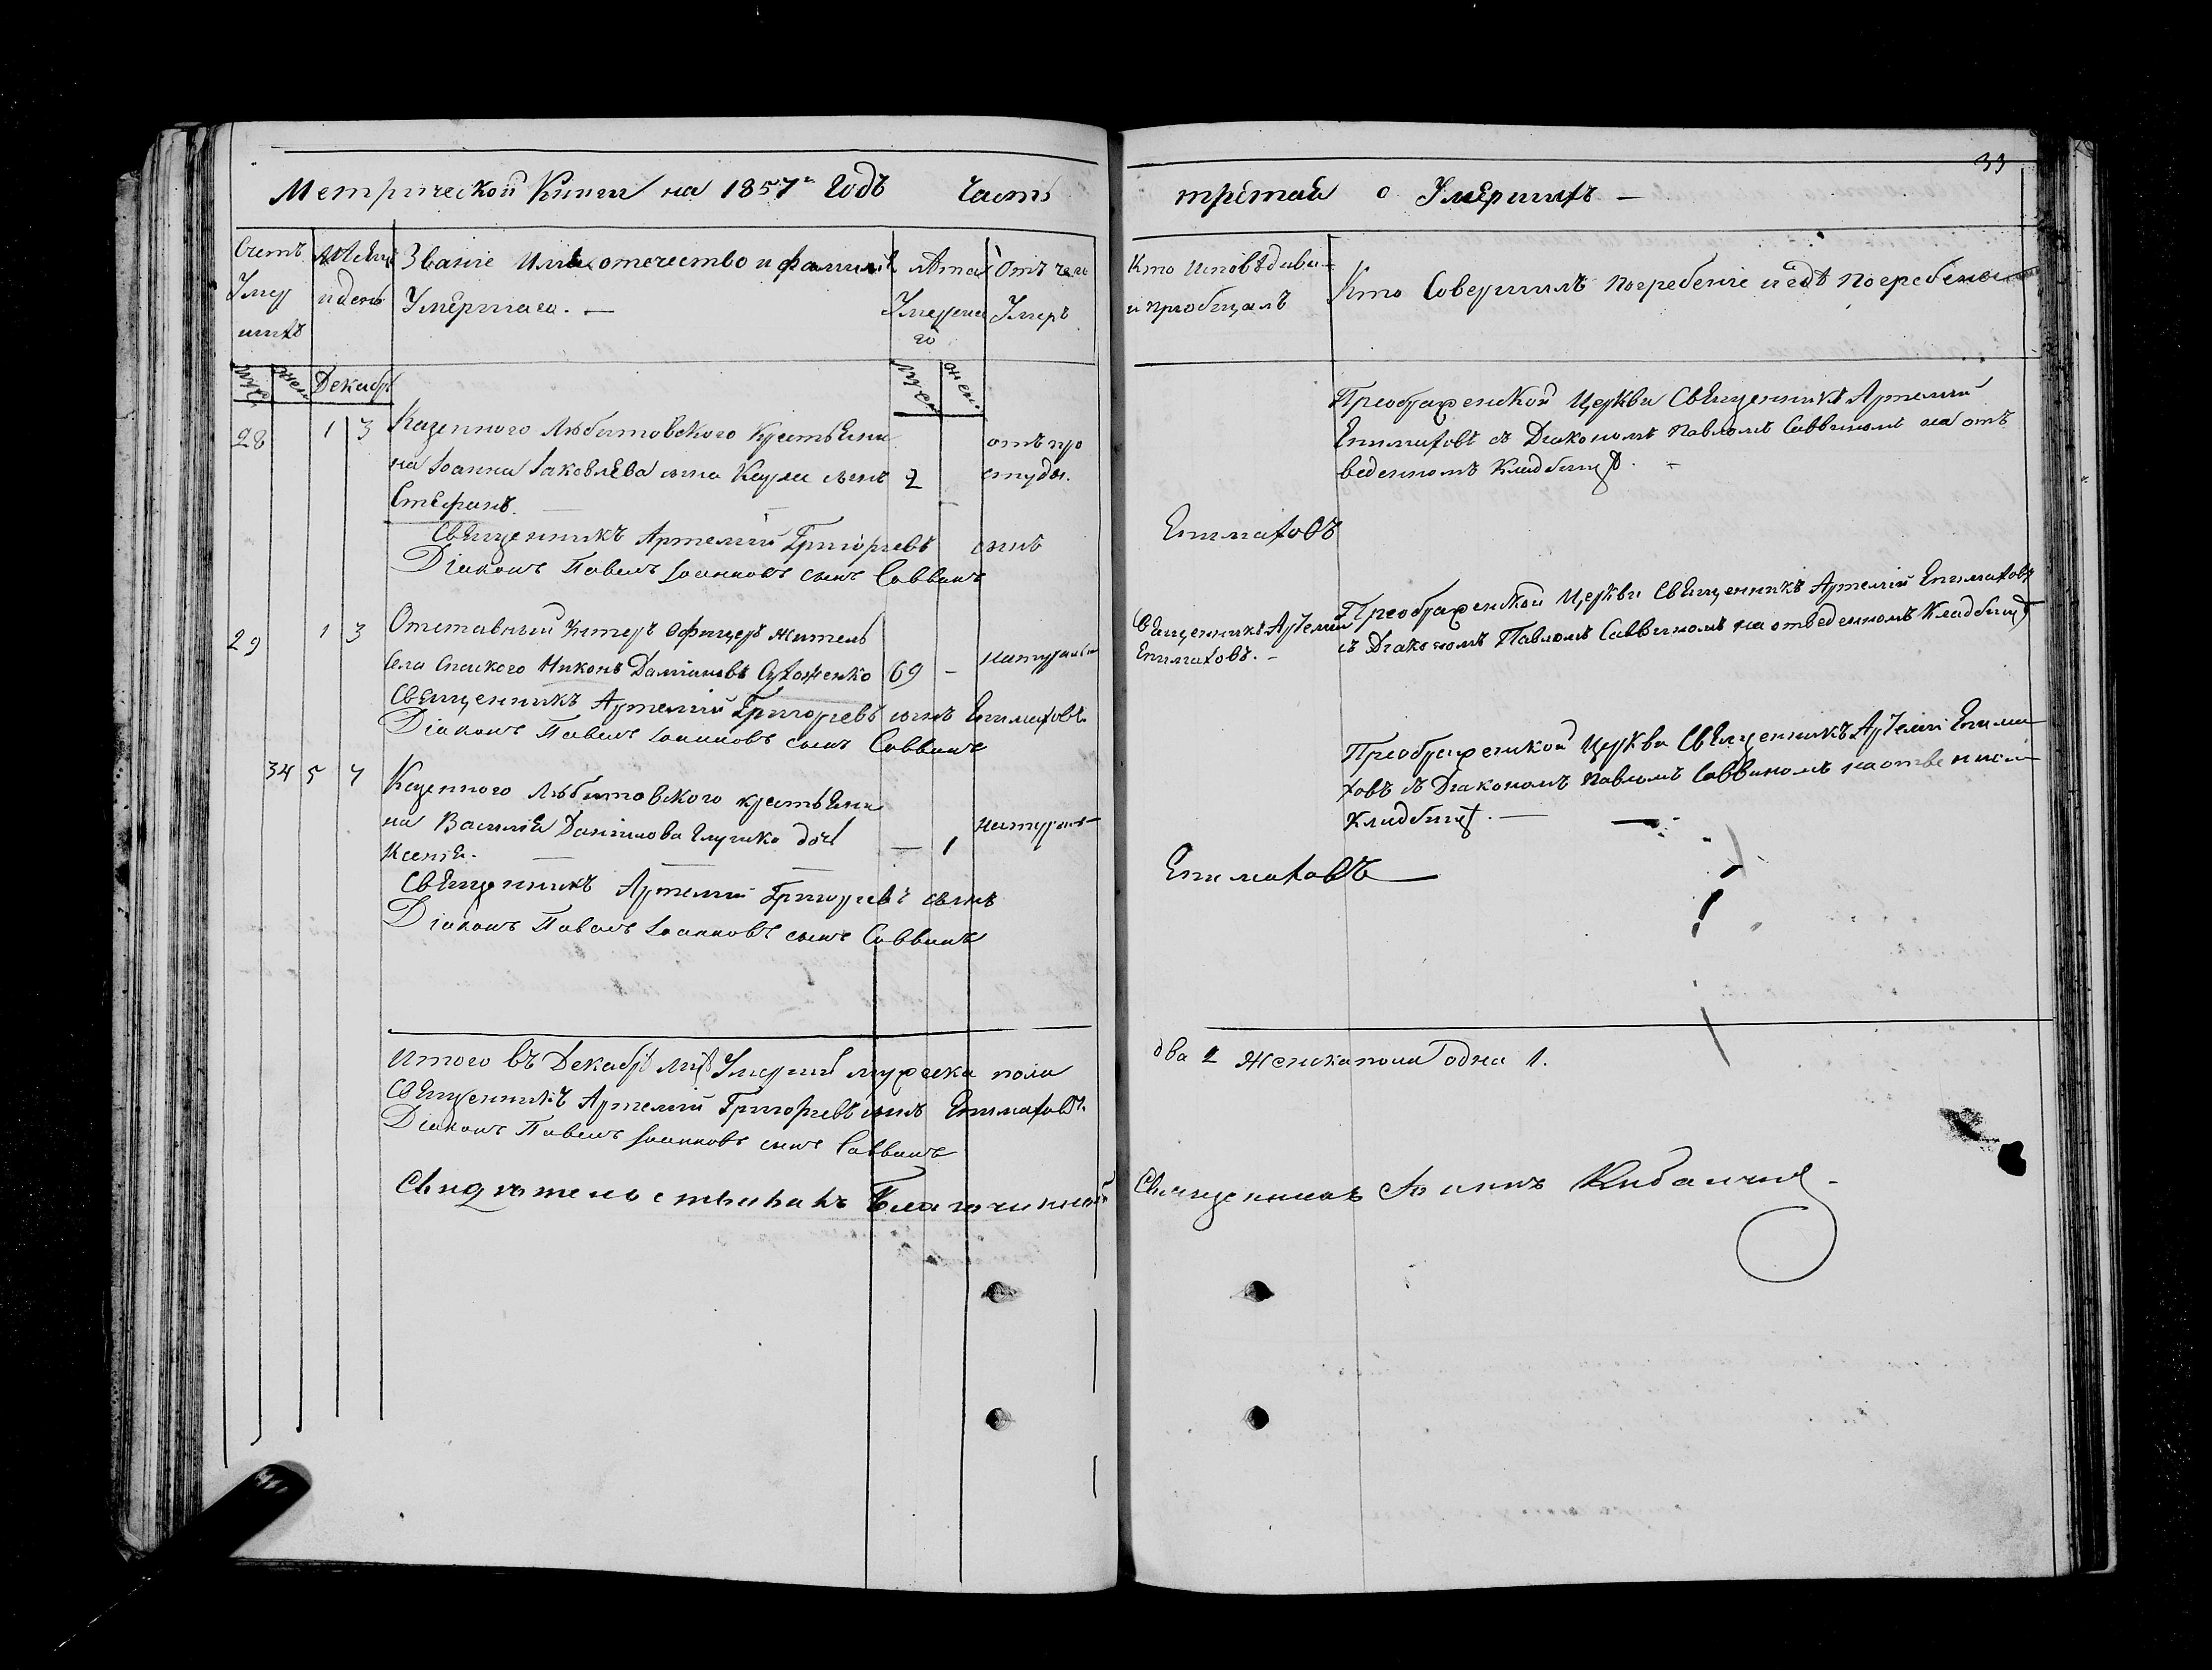 33
Метрической Книги на 1857 годъ Часть третая о Умершихъ —
Счетъ Умер шихъ
Месяцъ и день
Званіе Имя отечество и фамилія Умершаго. —
Лета Умершаго
Отъ чего Умеръ
Кто Исповѣдива и пріобщалъ
Кто Совершилъ погребеніе и гдѣ погребены
Муж жен Декабр муж жен
28 1 3 Казенного Любитовского крестьяни
на Іоанна Іаковлева сына сынъ 2 отъ про
Стефанъ. студы.
Священникъ Артемій Григорьевъ сынъ
Діаконъ Павелъ Іоанновъ сынъ Саввинъ
Епиматовъ
Преображенской Церкви Священникъ Артемій
Епиматовъ съ Діакономъ Павломъ Саввиномъ на отъ
веденномъ кладбищѣ. —
29 1 3 Отставный Унтеръ Офицеръ житель
села Спаского Никонъ Даміановъ 69 — натурально
Священникъ Артемій Григорьевъ сынъ Епиматовъ
Діаконъ Павелъ Іоанновъ сынъ Саввинъ
Священникъ Артемій
Епиматовъ. —
Преображенской Церкви Священникъ Артемій Епиматовъ
съ Діакономъ Павломъ Саввиномъ на отведенномъ кладбищѣ
34 5 7 Казенного Любитовского крестьяни
на Василія Даніилова Глушка дочь — 1 натурально
Ксенія.
Священникъ Артемій Григорьевъ сынъ
Діаконъ Павелъ Іоанновъ сынъ Саввинъ
Епиматовъ
Преображенской Церкви Священникъ Артемій Епима
товъ съ Діакономъ Павломъ Саввиномъ
кладбищѣ. —
Итого въ Декабрѣ Умерший мужеска пола два 2 женска пола одна 1.
Священникъ Артемій Григорьевъ сынъ Епиматовъ.
Діаконъ Павелъ Іоанновъ сынъ Саввинъ
Свидѣтельствовалъ Благочинный Священникъ Іоаннъ Кибальчичъ